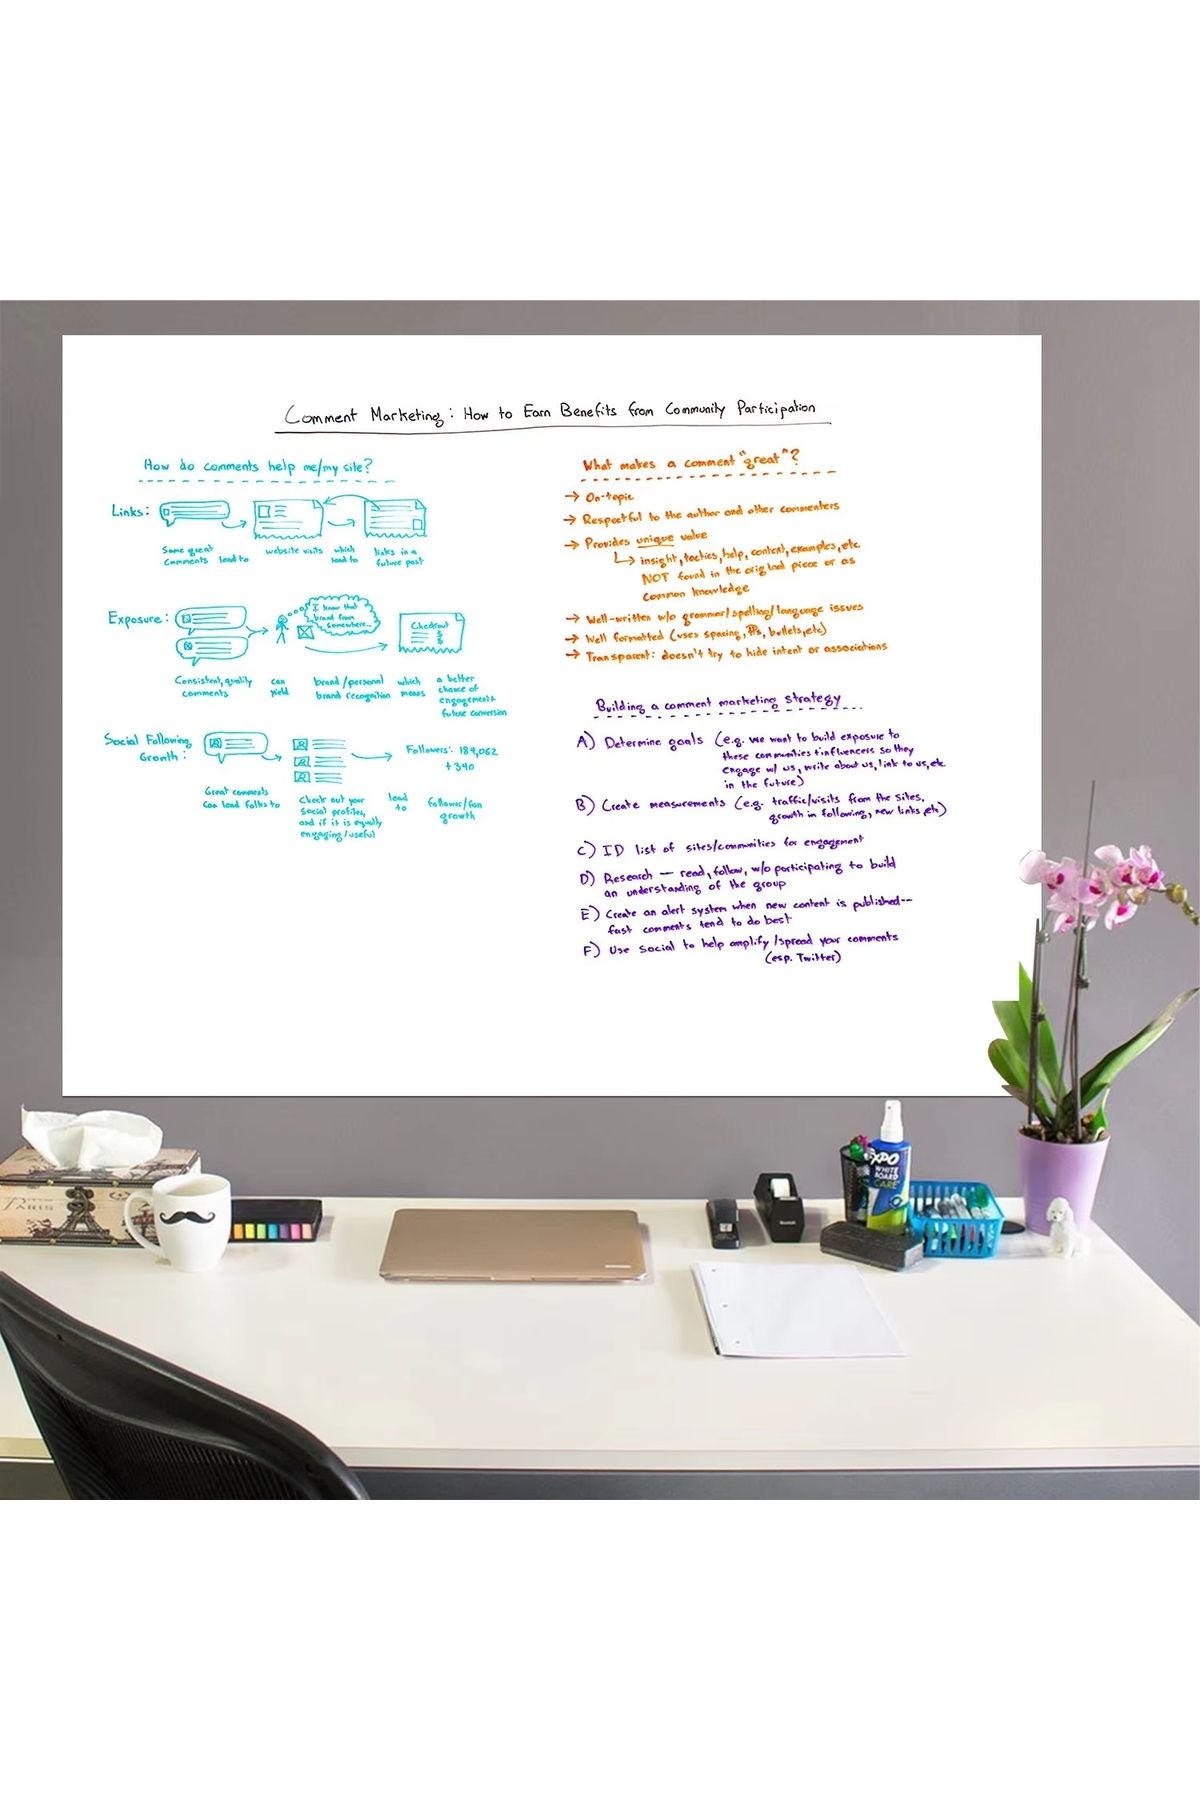 Comment Marketing: How to Earn Benefits from Community Participation
How do comments help me/my site?
Links:
Some great comments lead to
website visits
which lead to
links in a future post
Exposure:
I know that brand from somewhere...
Checkout
Consistent, quality comments
can yield
brand/personal brand recognition
which means
a better chance of engagement + future conversion
Social Following Growth:
Followers: 184,062
+340
Great comments can lead folks to
Check out your social profiles, and if it is equally engaging/useful
lead to
follower/fan growth
What makes a comment "great"?
→ On-topic
→ Respectful to the author and other commenters
→ Provides unique value
↳ insight, tactics, help, content, examples, etc.
NOT found in the original piece or as
common knowledge
→ Well-written w/o grammar/spelling/language issues
→ Well formatted (uses spacing, ¶s, bullets, etc)
→ Transparent: doesn't try to hide intent or associations
Building a comment marketing strategy
A) Determine goals (e.g. we want to build exposure to
these communities + influencers so they
engage w/ us, write about us, link to us, etc
in the future)
B) Create measurements (e.g. traffic/visits from the sites,
growth in following, new links, etc)
C) ID list of sites/communities for engagement
D) Research — read, follow, w/o participating to build
an understanding of the group
E) Create an alert system when new content is published--
fast comments tend to do best
F) Use social to help amplify/spread your comments
(esp. Twitter)
PARIS
EXPO
WHITE
BOARD
CARE